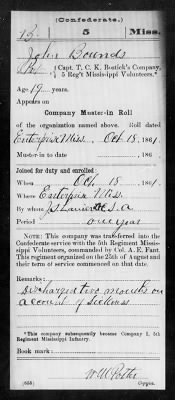 (Confederate.)
B 5 Miss.
John Bounds
Pvt, Capt. T. C. K. Bostick's Company,
5 Reg't Mississippi Volunteers.*
Age 19 years.
Appears on
Company Muster-in Roll
of the organization named above. Roll dated
Enterprise Miss. Oct 18, 1861.
Muster-in to date , 186 .
Joined for duty and enrolled:
When Oct 18, 1861.
Where Enterprise Miss.
By C.S.A.
Period one year
NOTE: This company was transferred into the Confed-
erate service with the 5th Regiment Missis-
sippi Volunteers, commanded by Col. A. E. Fant.
This regiment organized on the 25th of August and
their term of service commenced on that date.
Remarks:
Discharged two months on
account of sickness
*This company subsequently became Company I, 5th
Regiment Mississippi Infantry.
Book mark:
(655) Copyist.